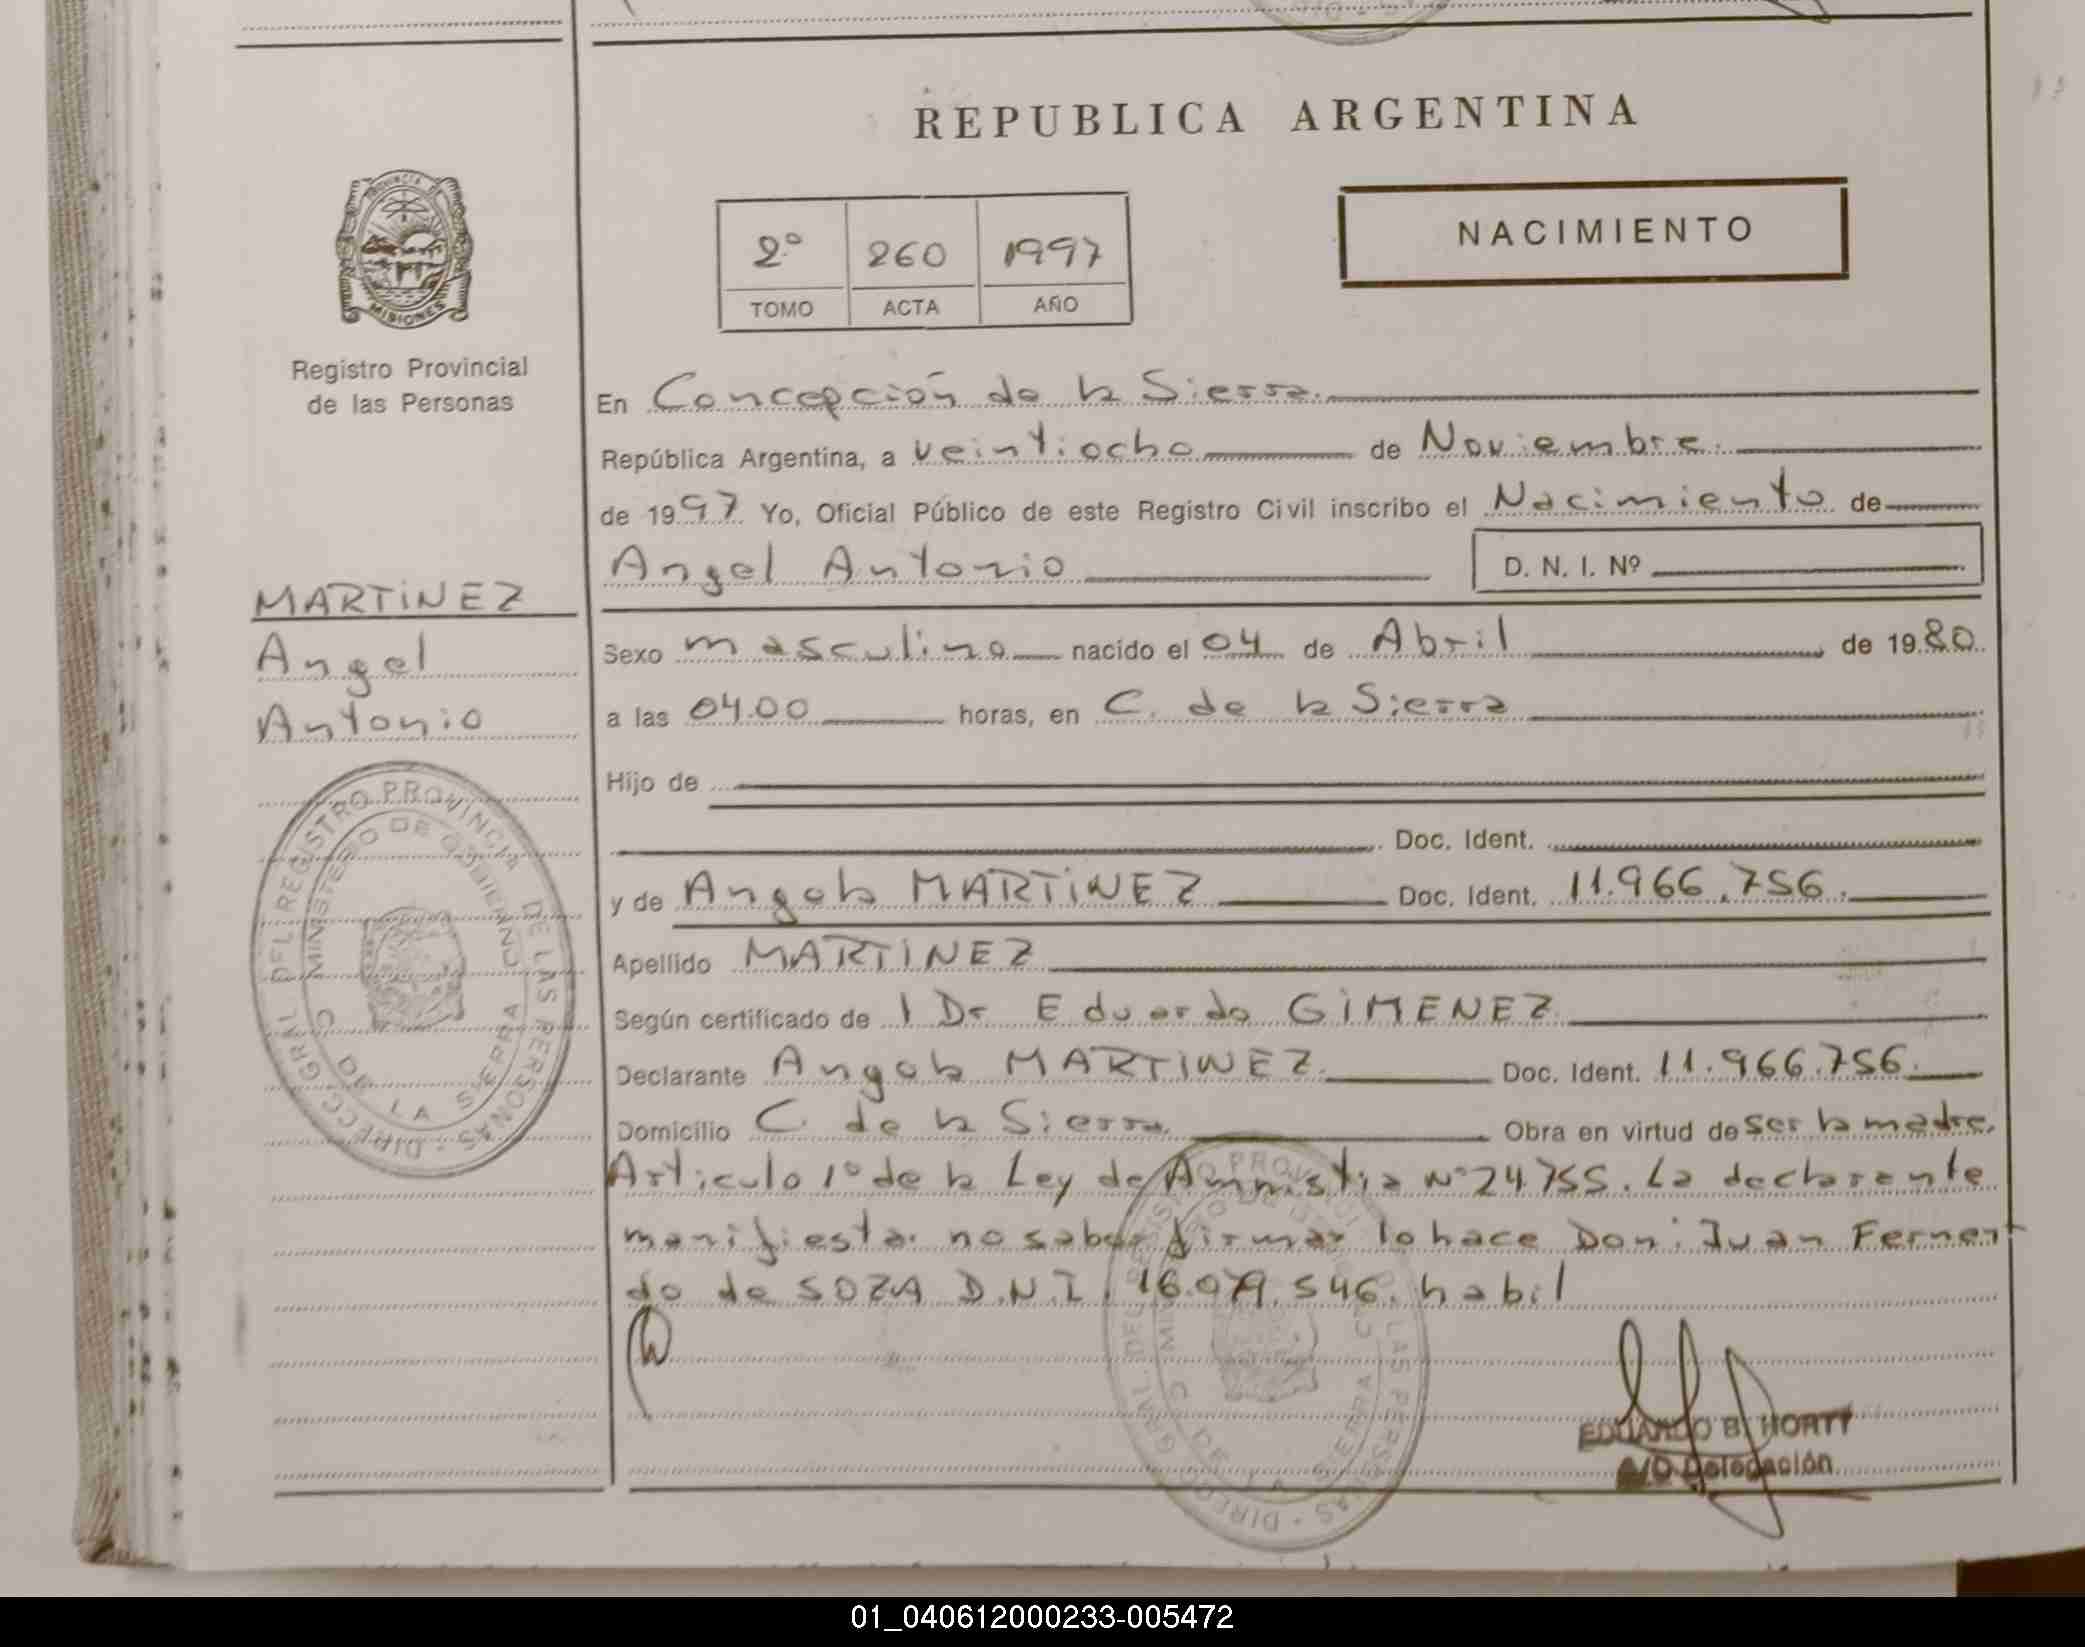 REPUBLICA ARGENTINA
NACIMIENTO
2º 260 1997
TOMO ACTA AÑO
PROVINCIA DE
MISIONES
Registro Provincial
de las Personas
En Concepción de la Sierra.
República Argentina, a veintiocho de Noviembre.
de 1997 Yo, Oficial Público de este Registro Civil inscribo el Nacimiento de
Angel Antonio D. N. I. Nº
MARTiNEZ
Angel
Antonio
Sexo masculino nacido el 04 de Abril de 1980
a las 04.00 horas, en C. de la Sierra
Hijo de
Doc. Ident.
y de Angela MARTiNEZ Doc. Ident. 11.966.756.
Apellido MARTINEZ
Según certificado de 1 Dr Eduardo GiMENEZ
Declarante Angela MARTINEZ Doc. Ident. 11.966.756.
Domicilio C. de la Sierra. Obra en virtud de ser la madre.
Articulo 1º de la Ley de Ammistia Nº 24755. La declarante
manifiesta no saber firmar lo hace Don: Juan Fernan
do de SOZA D.N.I. 16.079.546. habil
DIRECC. GRAL. DEL REGISTRO PROVINCIAL DE LAS PERSONAS
MINISTERIO DE GOBIERNO
C. DE LA SIERRA
DIRECC. GRAL. DEL REGISTRO PROVINCIAL DE LAS PERSONAS
C. DE LA SIERRA
EDUARDO B. HORTT
A/C Delegación
01_040612000233-005472